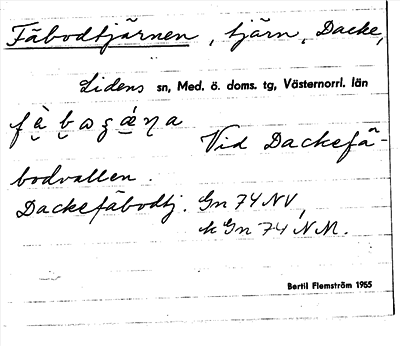 Fäbodtjärnen, tjärn, Dacke,
Lidens sn, Med. ö. doms. tg, Västernorrl. län
Vid Dackefä-
bodvallen.
Dackefäbodtj. Gn 74 NV,
k Gn 74 NM.
Bertil Flemström 1955